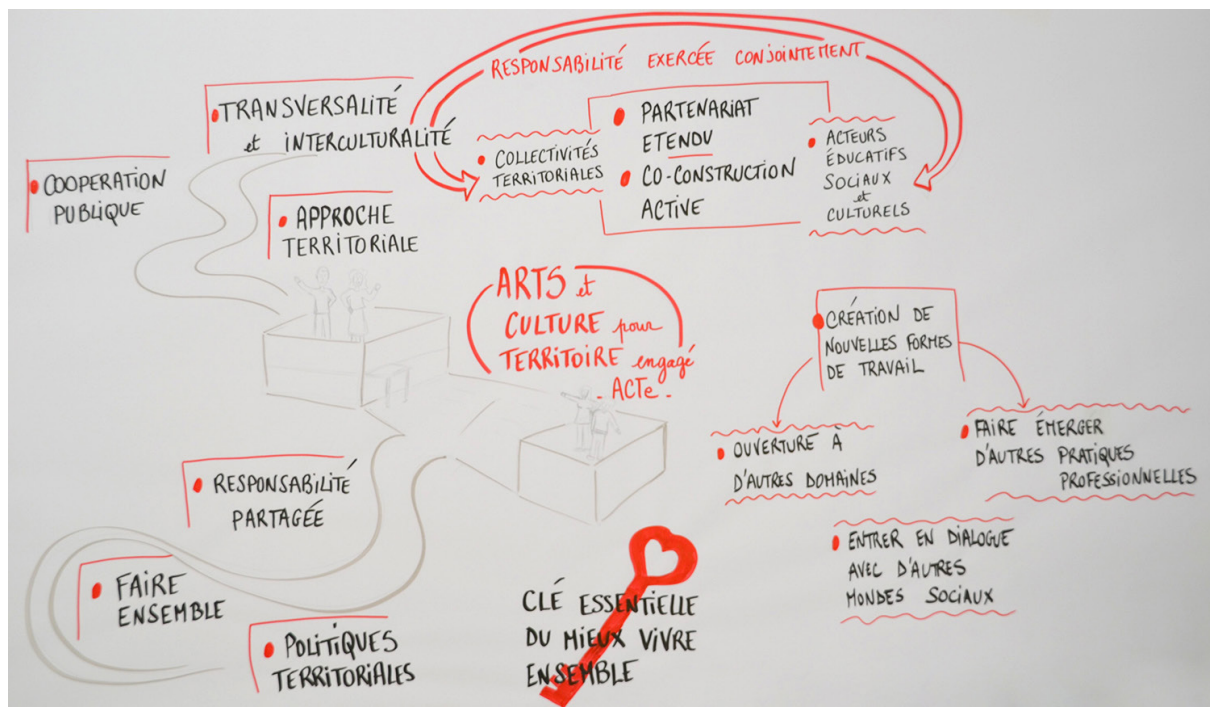 RESPONSABILITÉ EXERCÉE CONJOINTEMENT
TRANSVERSALITÉ
et INTERCULTURALITÉ
COOPERATION
PUBLIQUE
APPROCHE
TERRITORIALE
COLLECTIVITÉS
TERRITORIALES
PARTENARIAT
ETENDU
CO-CONSTRUCTION
ACTIVE
ACTEURS
ÉDUCATIFS
SOCIAUX
et
CULTURELS
ARTS et
CULTURE pour
TERRITOIRE engagé
- ACTe -
CRÉATION DE
NOUVELLES FORMES
DE TRAVAIL
OUVERTURE À
D'AUTRES DOMAINES
FAIRE ÉMERGER
D'AUTRES PRATIQUES
PROFESSIONNELLES
ENTRER EN DIALOGUE
AVEC D'AUTRES
MONDES SOCIAUX
RESPONSABILITÉ
PARTAGÉE
FAIRE
ENSEMBLE
POLITIQUES
TERRITORIALES
CLÉ ESSENTIELLE
DU MIEUX VIVRE
ENSEMBLE